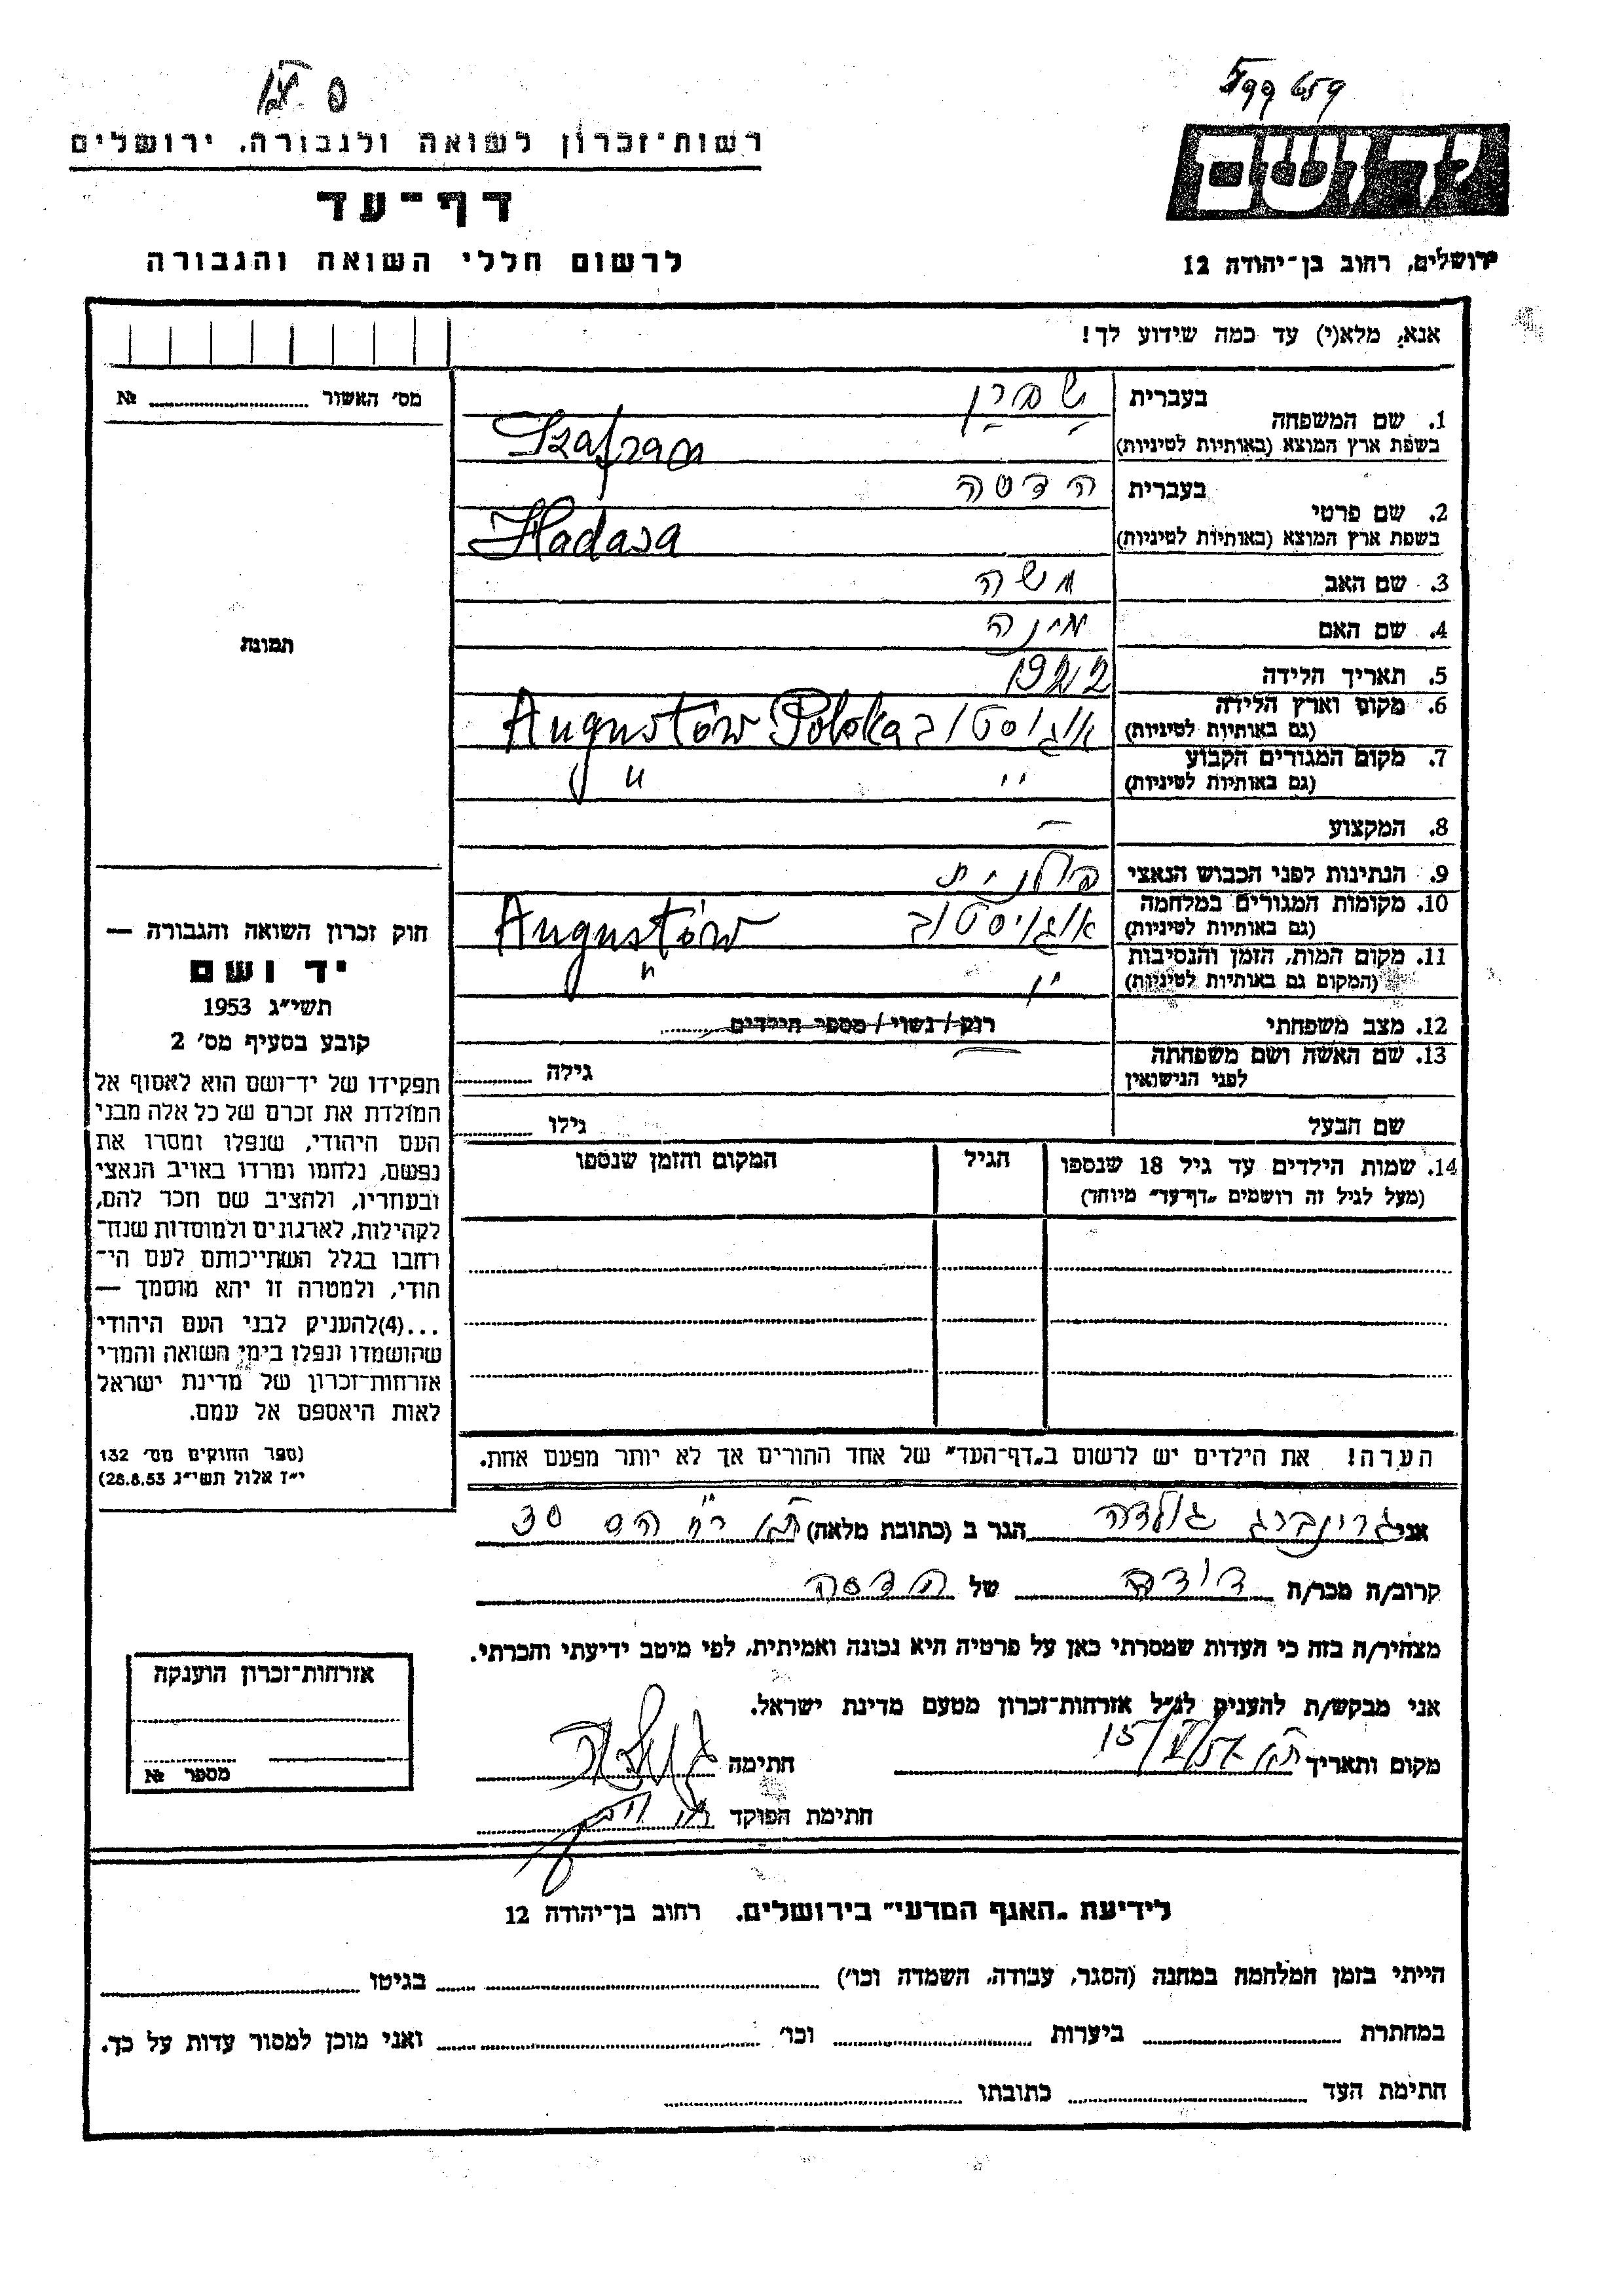 רשות־זכרון לשואה ולגבורה. ירושלים
דף־עד
לרשום חללי השואה והגבורה
ירושלים, רחוב בן־יהודה 12
אנא, מלא(י) עד כמה שידוע לך!
מס׳ האשור №
תמונת
1. שם המשפחה
בעברית
בשפת ארץ המוצא (באותיות לטיניות)
Szafran
2. שם פרטי
בעברית הדסה
בשפת ארץ המוצא (באותיות לטיניות)
Hadasa
3. שם האב משה
4. שם האם מינה
5. תאריך הלידה 1922
6. מקום וארץ הלידה אוגוסטוב Augustów Polska
(גם באותיות לטיניות)
7. מקום המגורים הקבוע " "
(גם באותיות לטיניות)
8. המקצוע —
9. הנתינות לפני הכבוש הנאצי פולנית
10. מקומות המגורים במלחמה אוגוסטוב Augustów
(גם באותיות לטיניות)
11. מקום המות, הזמן והנסיבות " "
(המקום גם באותיות לטיניות)
12. מצב משפחתי רוק/נשוי/מספר הילדים
13. שם האשה ושם משפחתה — גילה
לפני הנישואין
שם הבעל גילו
14. שמות הילדים עד גיל 18 שנספו הגיל המקום והזמן שנספו
(מעל לגיל זה רושמים „דף־עד” מיוחד)
הערה! את הילדים יש לרשום ב„דף־העד” של אחד ההורים אך לא יותר מפעם אחת.
חוק זכרון השואה והגבורה —
יד ושם
תשי״ג 1953
קובע בסעיף מס׳ 2
תפקידו של יד־ושם הוא לאסוף אל
המולדת את זכרם של כל אלה מבני
העם היהודי, שנפלו ומסרו את
נפשם, נלחמו ומרדו באויב הנאצי
ובעוזריו, ולהציב שם וזכר להם,
לקהילות, לארגונים ולמוסדות שנח־
רחבו בגלל השתייכותם לעם הי־
הודי, ולמטרה זו יהא מוסמך —
...(4)להעניק לבני העם היהודי
שהושמדו ונפלו בימי השואה והמרי
אזרחות־זכרון של מדינת ישראל
לאות היאספם אל עמם.
(ספר החוקים מס׳ 132
י״ז אלול תשי״ג 28.8.53)
אני גרינברג גולדה הגר ב (כתובת מלאה) ת״א רח׳ 30
קרוב/ה מכר/ה דודה של הדסה
מצהיר/ה בזה כי העדות שמסרתי כאן על פרטיה היא נכונה ואמיתית, לפי מיטב ידיעתי והכרתי.
אני מבקש/ת להעניק לנ״ל אזרחות־זכרון מטעם מדינת ישראל.
מקום ותאריך ת״א חתימה
חתימת הפוקד
אזרחות־זכרון הוענקה
מספר №
לידיעת „האגף המדעי” בירושלים. רחוב בן־יהודה 12
הייתי בזמן המלחמה במחנה (הסגר, עבודה, השמדה וכו׳) בגיטו
במחתרת ביערות וכו׳ ואני מוכן למסור עדות על כך.
חתימת העד כתובתו